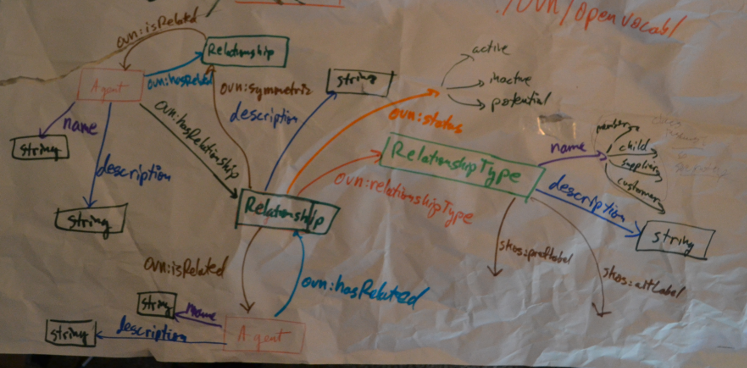 /ovn/openvocab/
ovn:isRelated
Relationship
Agent
ovn:hasRelated
ovn:symmetric
string
active
inactive
potential
ovn:status
name
string
description
string
ovn:hasRelationship
description
RelationshipType
name
member
child
supplier
customer
description
string
ovn:relationshipType
Relationship
skos:prefLabel
skos:altLabel
ovn:isRelated
ovn:hasRelated
string
name
string
description
Agent